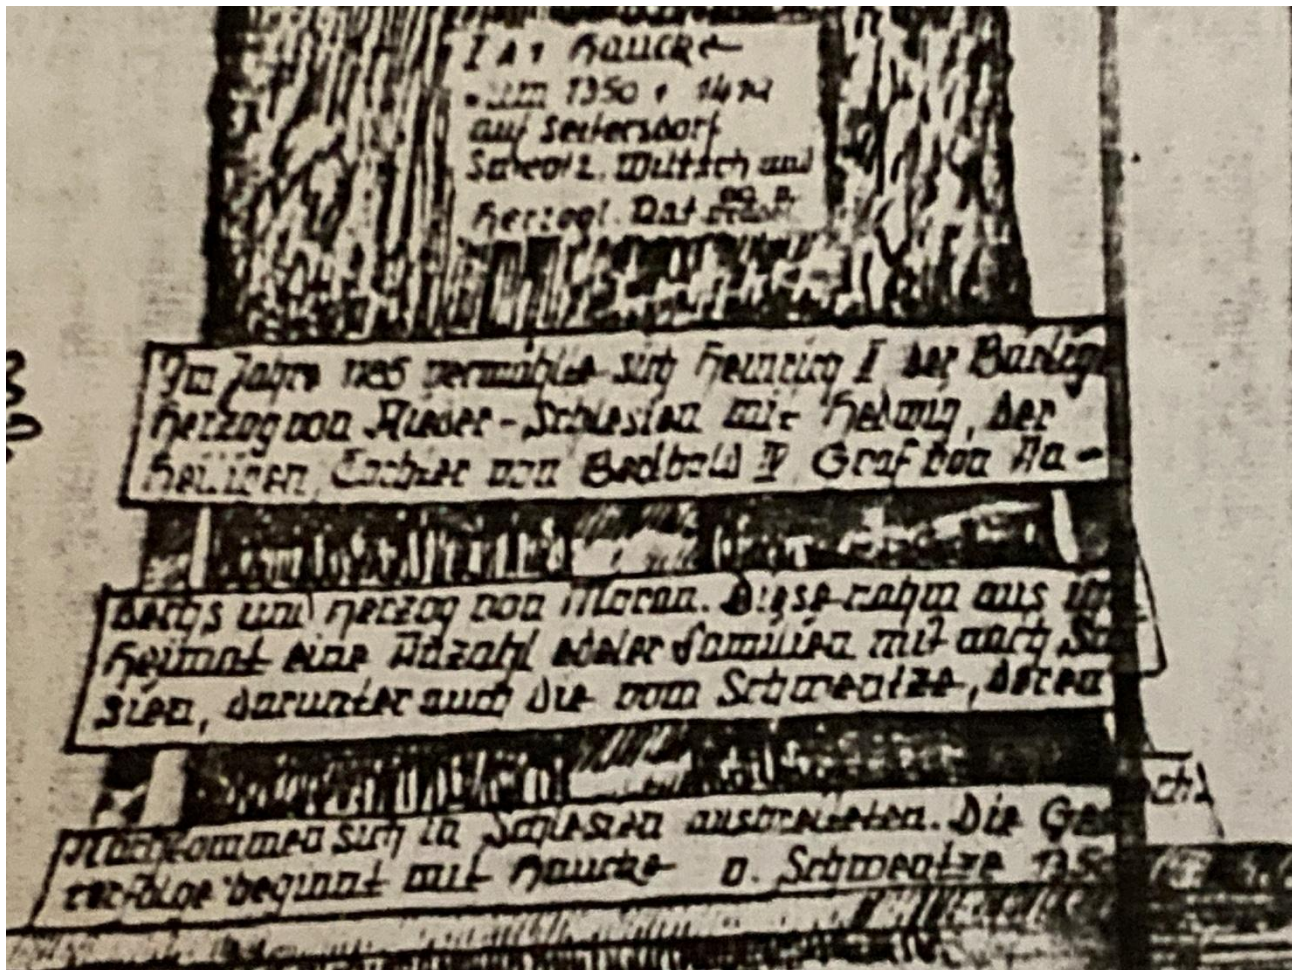 I A 1 Haucke
um 1350 † 14
auf Seifersdorf
Wiltsch und
herzogl. Rat
Im Jahre 1186 vermählte sich Heinrich I der Bärtige
Herzog von Nieder-Schlesien mit Hedwig, der
Heiligen, Tochter von Bertbold IV Graf von An-
dechs und Herzog von Meran. Diese nahm aus
Heimat eine Anzahl edeler Familien mit nach
sien, darunter auch die vom Schwentze, deren
Nachkommen sich in Schlesien ausbreiteten. Die
beginnt mit Haucke v. Schwentze 135